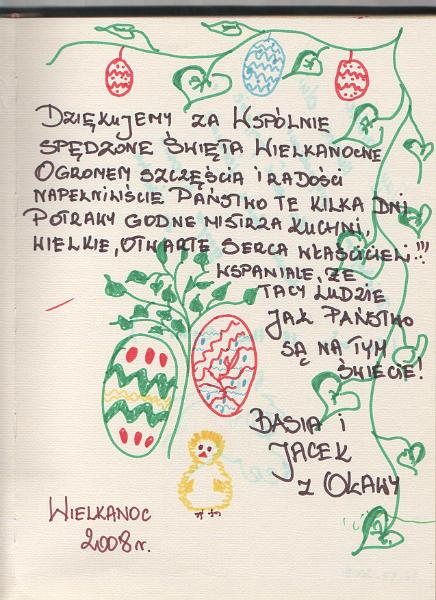 DZIĘKUJEMY ZA WSPÓLNIE
SPĘDZONE ŚWIĘTA WIELKANOCNE
OGROMEM SZCZĘŚCIA I RADOŚCI
NAPEŁNILIŚCIE PAŃSTWO TE KILKA DNI
POTRAWY GODNE MISTRZA KUCHNI,
WIELKIE, OTWARTE SERCA WŁAŚCICIELI!!!
WSPANIALE, ŻE
TACY LUDZIE
JAK PAŃSTWO
SĄ NA TYM
ŚWIECIE!
BASIA i
JACEK
z OŁAWY
WIELKANOC
2008r.